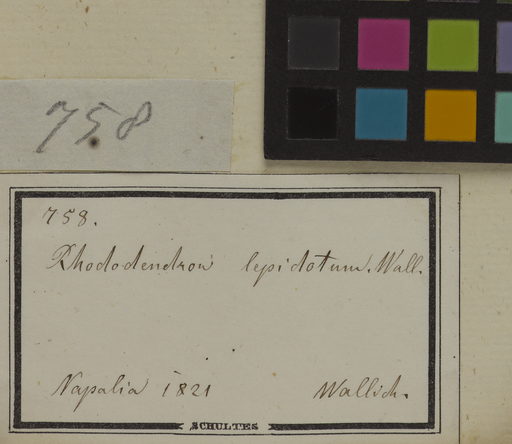 758
758.
Rhododendron lepidotum. Wall.
Napalia 1821 Wallich.
SCHULTES